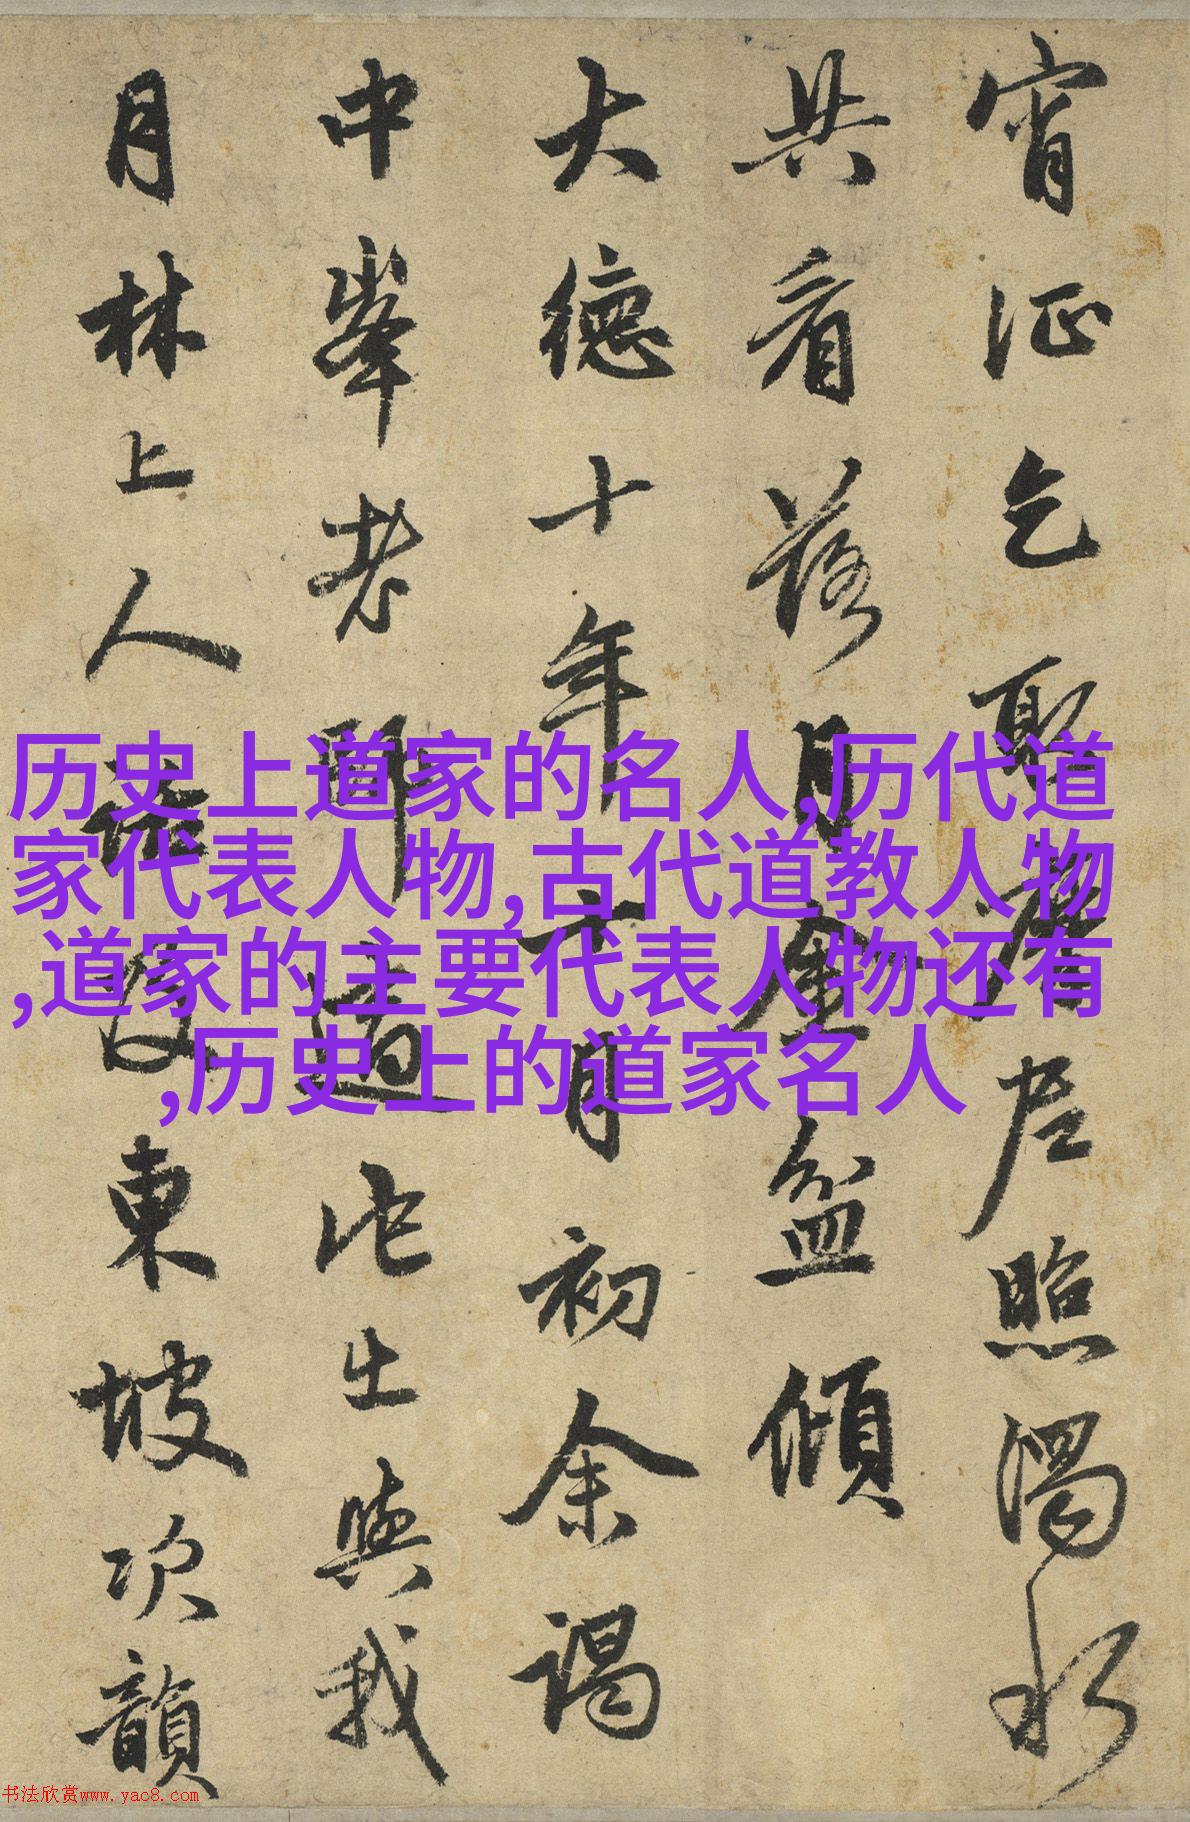 宵征乞取摩尼照濁水
共看落月金盆傾
大德十年六月初余謁
中峯老師適他出與我
月林上人東坡次韻
历史上道家的名人,历代道
家代表人物,古代道教人物
,道家的主要代表人物还有
,历史上的道家名人
书法欣赏www.yac8.com